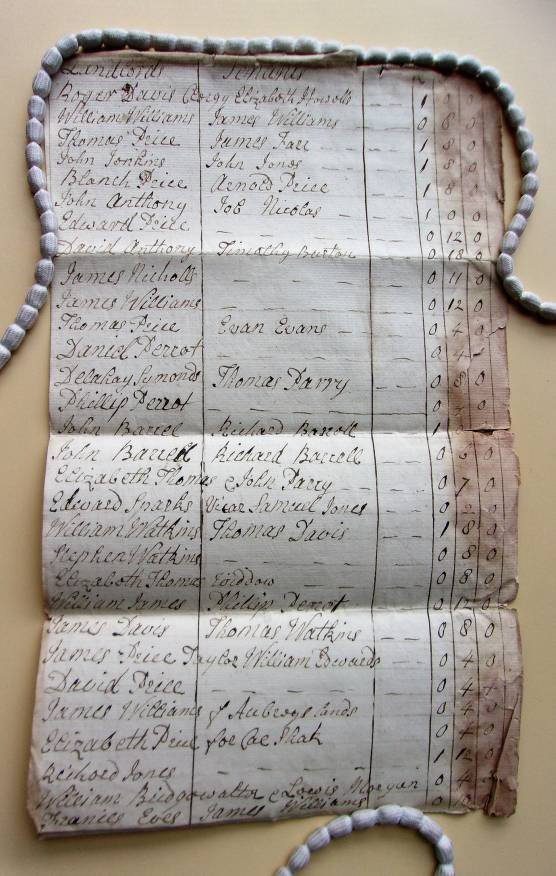 Landlords Tenants
Roger Davis Elizabeth Howolls - - 1 0 0
William Williams James Williams - - 0 8 0
Thomas Price James Farr - - 1 8 0
John Jonkins John Jones - - 1 8 0
Blanch Price Arnold Price - - 1 8 0
John Anthony Job Nicolas - - 1 0 0
Edward Price - - 0 12 0
David Anthony Timothy Burton - - 0 18 0
James Nicholls - - 0 11 0
James Williams - - 0 12 0
Thomas Price Evan Evans - - 0 4 0
Daniel Perrot - - 0 4
Delahay Symonds Thomas Parry - - 0 8 0
Phillip Perrot - - 0
John Barrel Richard Barroll 1
John Barrell Richard Barrell - - 0 0
Elizabeth Thomas & John Parry - - 0 7 0
Edward Sparks Vicar Samuel Jones - - 0 2 0
William Watkins Thomas Davis - - 1 8 0
Stephen Watkins - - 0 8 0
Elizabeth Thomas Widdow - - 0 8 0
William James Philip Perrot - - 0 12 0
James Davis Thomas Watkins - - 0 8 0
James Price Taylor William Edwards - - 0 4 0
David Price - - 0 4
James Williams of Aubreys lands - - 0 4 0
Elizabeth Price for Cae - - 0 4 0
Richord Jones - - 1 12 0
William Bridgwalter & Lowis Morgan 0 4
Francies Eves James Williams 0